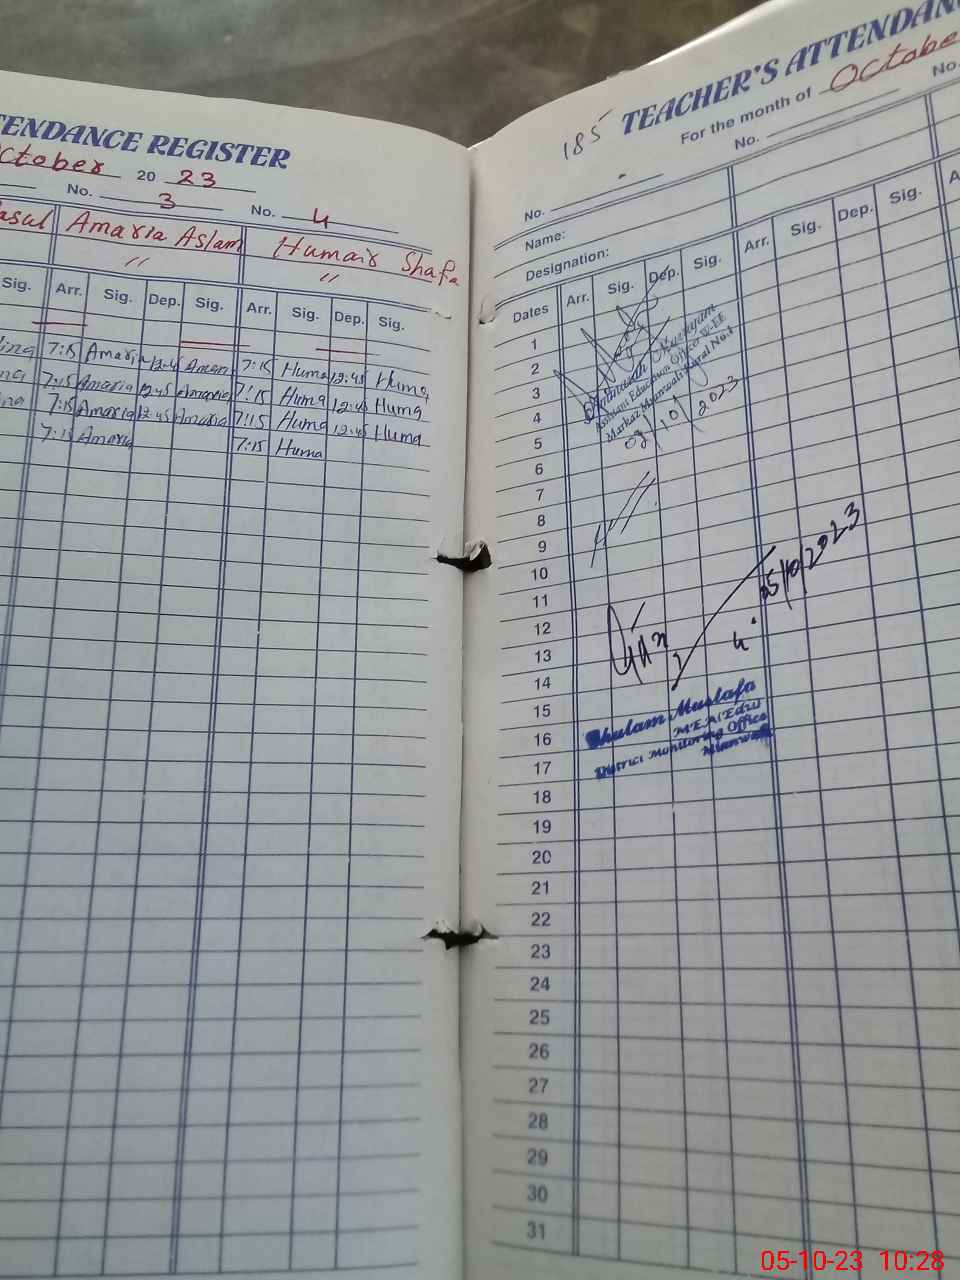 TENDANCE REGISTER
ctober 20 23
No. 3 No. 4
asul Amaria Aslam Humair Shafa
" "
Sig. Arr. Sig. Dep. Sig. Arr. Sig. Dep. Sig.
7:15 Amaria 12:45 7:15 Huma 12:45 Huma
7:15 Amaria 12:45 Amaria 7:15 Huma 12:45 Huma
7:15 Amaria 12:45 Amaria 7:15 Huma 12:45 Huma
7:15 Amaria 7:15 Huma
185
TEACHER'S ATTENDAN
For the month of Octobe
No. No. No.
Name:
Designation:
Dates Arr. Sig. Dep. Sig. Arr. Sig. Dep. Sig. A
1
2
3
4
5
6
7
8
9
10
11
12
13
14
15
16
17
18
19
20
21
22
23
24
25
26
27
28
29
30
31
Assistant Education Officer W-EE
10/2023
05/10/2023
Ghulam Mustafa
M.E.A(Edu
District Monitoring Office
Mianwali
05-10-23 10:28